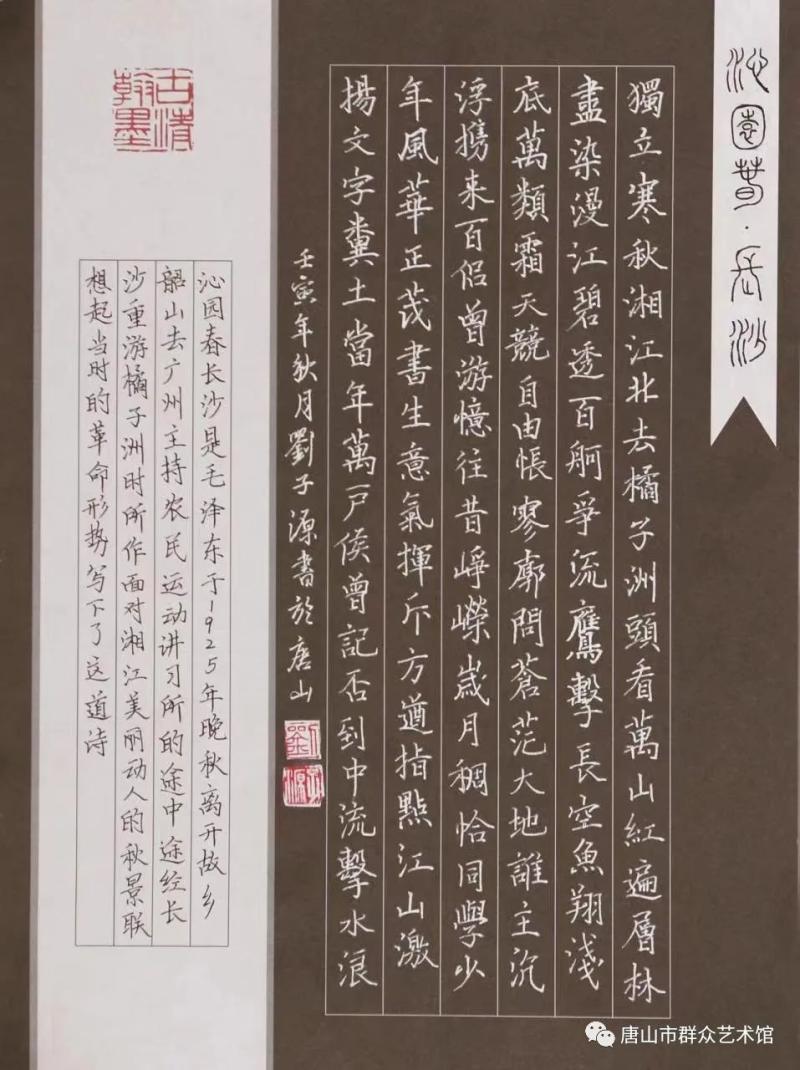 沁園春·長沙
獨立寒秋湘江北去橘子洲頭看萬山紅遍層林
盡染漫江碧透百舸爭流鷹擊長空魚翔淺
底萬類霜天競自由悵寥廓問蒼茫大地誰主沉
浮攜来百侣曾游憶往昔崢嶸崴月稠恰同學少
年風華正茂書生意氣揮斥方遒指點江山激
揚文字糞土當年萬户侯曾記否到中流擊水浪
壬寅年秋月劉子源書於唐山
劉
子源
古清
翰墨
沁园春长沙是毛泽东于1925年晚秋离开故乡
韶山去广州主持农民运动讲习所的途中途经长
沙重游橘子洲时所作面对湘江美丽动人的秋景联
想起当时的革命形势写下了这道诗
唐山市群众艺术馆